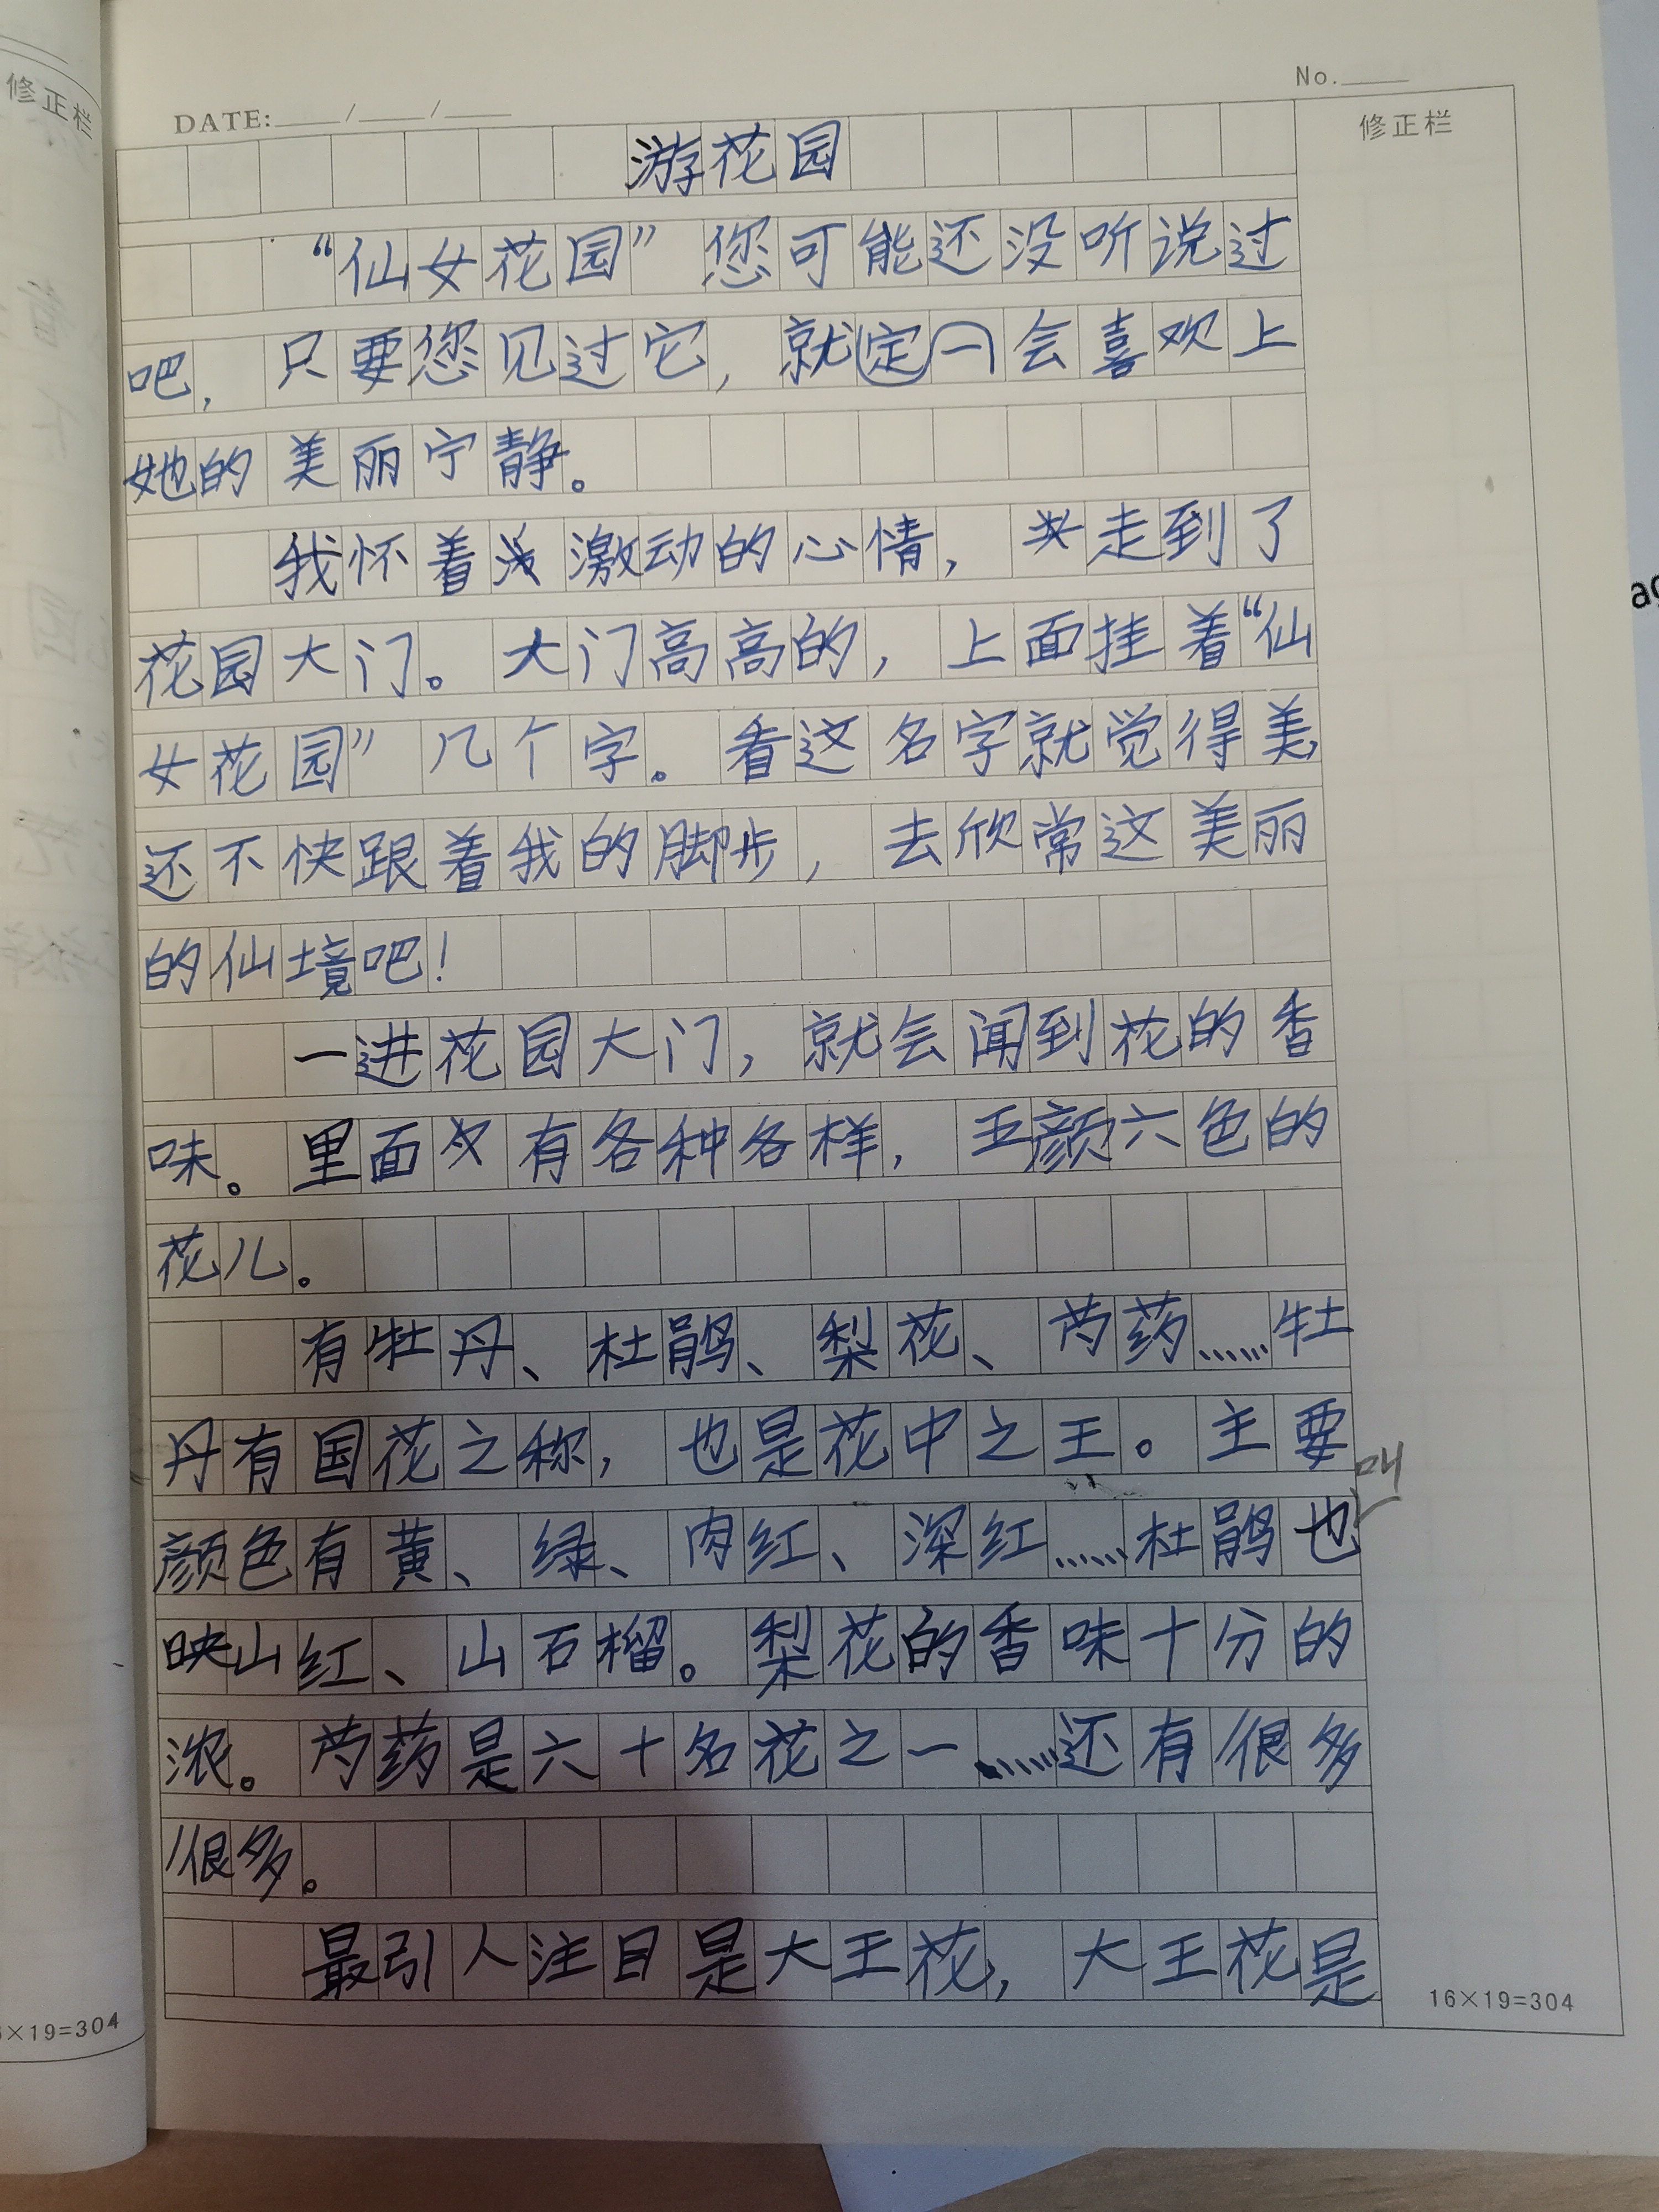 修正栏
No.
DATE: / /
修正栏
游花园
“仙女花园”您可能还没听说过
吧，只要您见过它，就定一会喜欢上
她的美丽宁静。
我怀着激动的心情，走到了
花园大门。大门高高的，上面挂着“仙
女花园”几个字。看这名字就觉得美，
还不快跟着我的脚步，去欣常这美丽
的仙境吧！
一进花园大门，就会闻到花的香
味。里面有各种各样，五颜六色的
花儿。
有牡丹、杜鹃、梨花、芍药……牡
丹有国花之称，也是花中之王。主要
叫
颜色有黄、绿、肉红、深红……杜鹃也
映山红、山石榴。梨花的香味十分的
浓。芍药是六十名花之一……还有很多
很多。
最引人注目是大王花，大王花是
16×19=304
6×19=304